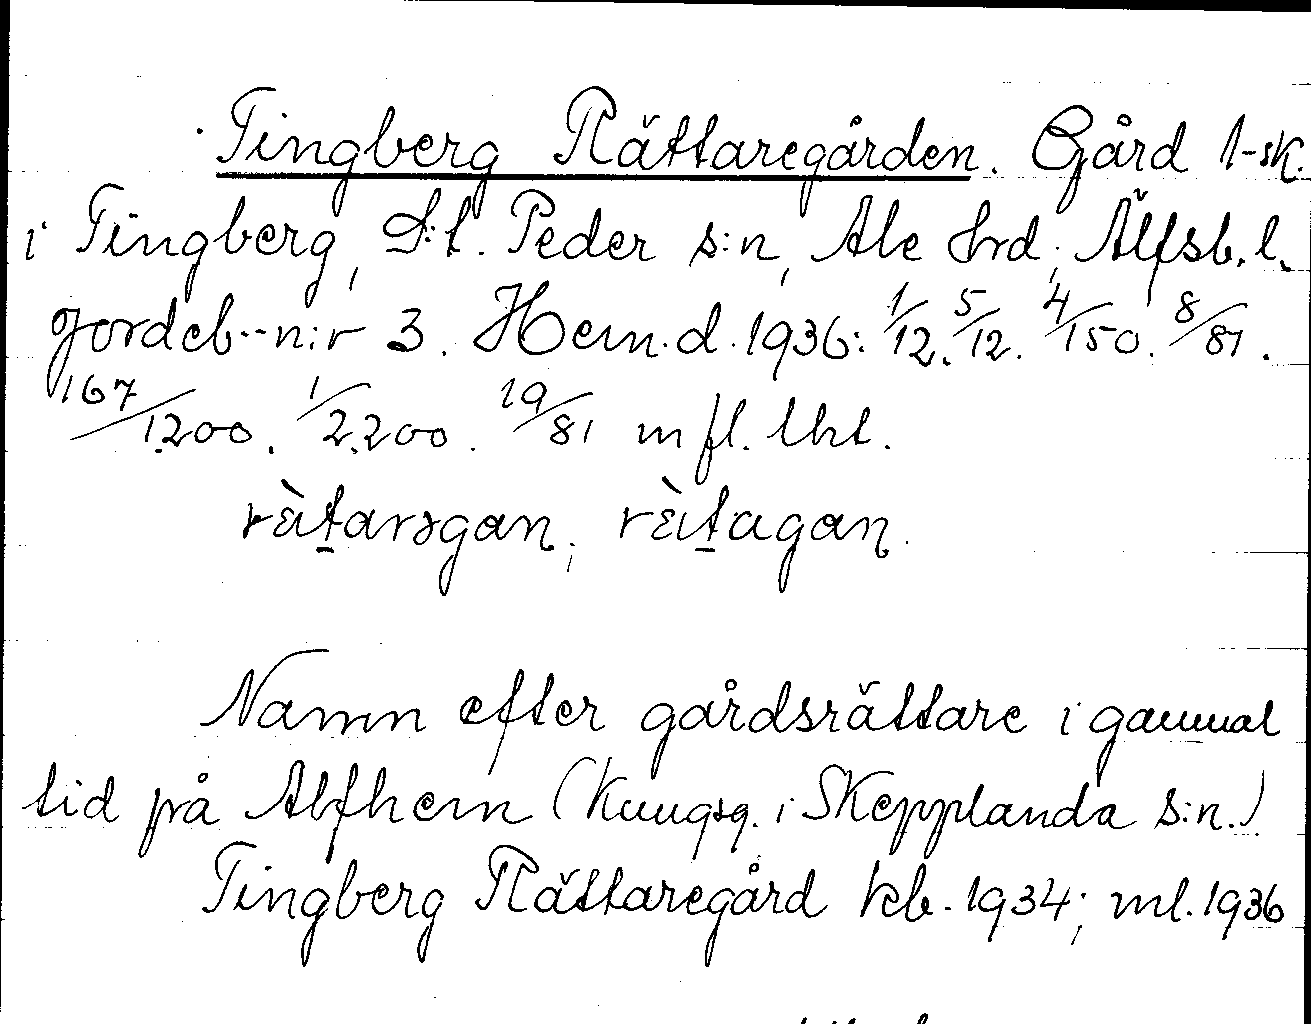 Tingberg Rättaregården. Gård 1-sk.
i Tingberg, S:t. Peder s:n, Ale hrd; Älfsb. l.
Jordeb.-n:r 3. Hem.d. 1936: 1/12. 5/12. 4/150. 8/81.
167/1200. 1/2200. 19/81 m fl. lht.
rèt̠arsgan; rèt̠agan.
Namn efter gårdsrättare i gammal
tid på Alfhem (Kungsg. i Skepplanda s:n.)
Tingberg Rättaregård kb. 1934; ml. 1936